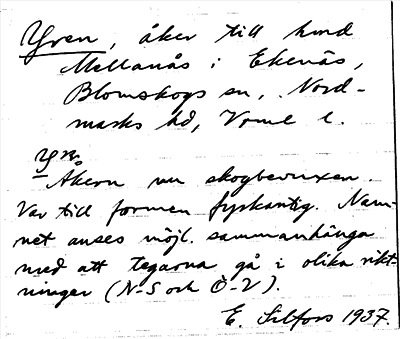 Yren, åker till hmd
Mellanås i Ekenäs,
Blomskogs sn, Nord-
marks hd, Vrml l.
Yrn
Åkern nu skogbevuxen.
Var till formen fyrkantig. Nam-
net anses möjl. sammanhänga
med att tegarna gå i olika rikt-
ninger (N-S och Ö-V).
E. Silfors 1937.